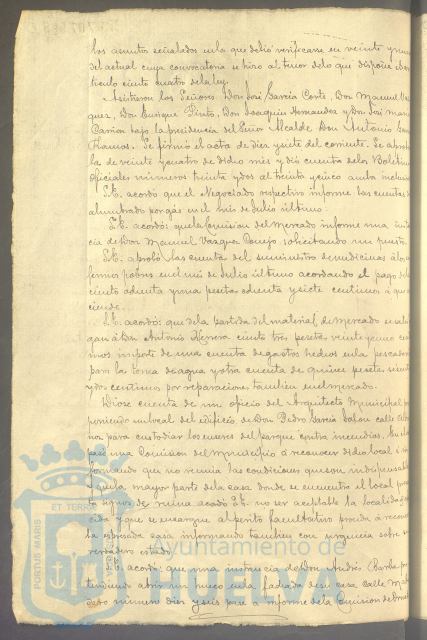 los asuntos señalados en la que debió verificarse en veinte y
del actual cuya convocatoria se hizo al tenor de lo que dispone el ar
tículo ciento cuatro de la ley.
Asistieron los Señores Don José García Corte, Don Manuel Vaz
quez, Don Enrique Pinto, Don Joaquin Hernandez y Don José Maria
Carrion bajo la presidencia del Señor Alcalde Don Antonio
Ramos. Se firmó el acta de diez y siete del corriente. Se aprobó
la de veinte y cuatro de dicho mes y dió cuenta de los Boletines
Oficiales números treinta y dos al treinta y cinco ambos inclusive
S.E. acordó que el Negociado respectivo informe las cuentas de
alumbrado por gas en el mes de Julio último.
S.E. acordó: que la Comision del Mercado informe una instan
cia de Don Manuel Vazquez solicitando un puesto.
S.E. aprobó las cuentas del suministro de medicinas a los en
fermos pobres en el mes de Julio último acordando el pago de
ciento ochenta y una pesetas ochenta y siete centimos á que as
ciende.
S.E. acordó: que de la partida del material de mercado se satis
gan á Don Antonio Herrera ciento tres pesetas veinte y cinco cen
timos importe de una cuenta de gastos hechos en la pescaderia
para la toma de agua y otra cuenta de quince pesetas
y dos centimos por reparaciones tambien en el mercado.
Dióse cuenta de un oficio del Arquitecto Municipal pro
poniendo un local del edificio de Don Pedro García calle
para custodiar los enseres del parque contra incendios.
una Comision del Municipio á reconocer dicho local é in
formando que no reunia las condiciones que son indispensables
la mayor parte de la casa donde se encuentra el local
signos de ruina acordó S.E. no ser aceptable la localidad
y que se encargue al perito facultativo proceda á reconocer
la espresada casa informando tambien con urgencia sobre su
verdadero estado.
S.E. acordó: que una instancia de Don Andrés Barba pre
tendiendo abrir un hueco en la fachada de su casa calle
número diez y seis pase á informe de la Comision de Ornato
PORTUS MARIS ET TERRAE
Ayuntamiento de
HUELVA